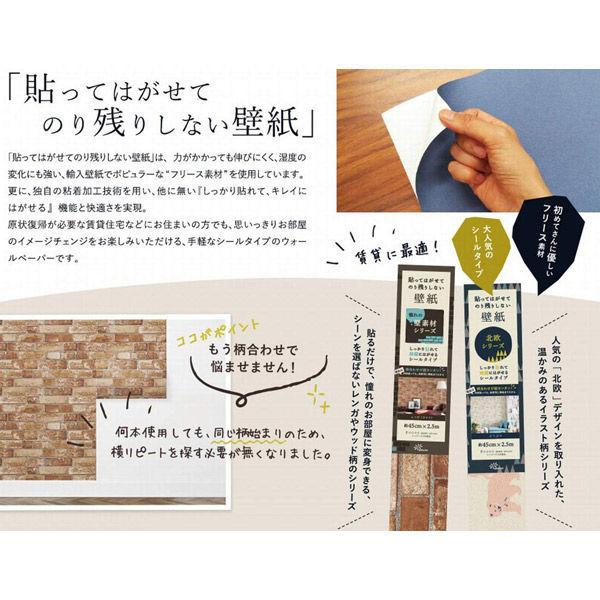 「貼ってはがせて
のり残りしない壁紙」
「貼ってはがせてのり残りしない壁紙」は、力がかかっても伸びにくく、湿度の
変化にも強い、輸入壁紙でポピュラーな“フリース素材”を使用しています。
更に、独自の粘着加工技術を用い、他に無い『しっかり貼れて、キレイに
はがせる』 機能と快適さを実現。
原状復帰が必要な賃貸住宅などにお住まいの方でも、思いっきりお部屋
のイメージチェンジをお楽しみいただける、手軽なシールタイプのウォー
ルペーパーです。
賃貸に最適!
大人気の
シールタイプ
初めてさんに優しい
フリース素材
ココがポイント
もう柄合わせで
悩ませません!
何本使用しても、同じ柄始まりのため、
横リピートを探す必要が無くなりました。
貼るだけで、憧れのお部屋に変身できる、
シーンを選ばないレンガやウッド柄のシリーズ
貼ってはがせて
のり残りしない
壁紙
憧れの
壁素材
シリーズ
しっかり貼れて
綺麗にはがせる
シールタイプ
約45cm×2.5m
貼ってはがせて
のり残りしない
壁紙
北欧
シリーズ
しっかり貼れて
綺麗にはがせる
シールタイプ
約45cm×2.5m
人気の「北欧」デザインを取り入れた、
温かみのあるイラスト柄シリーズ